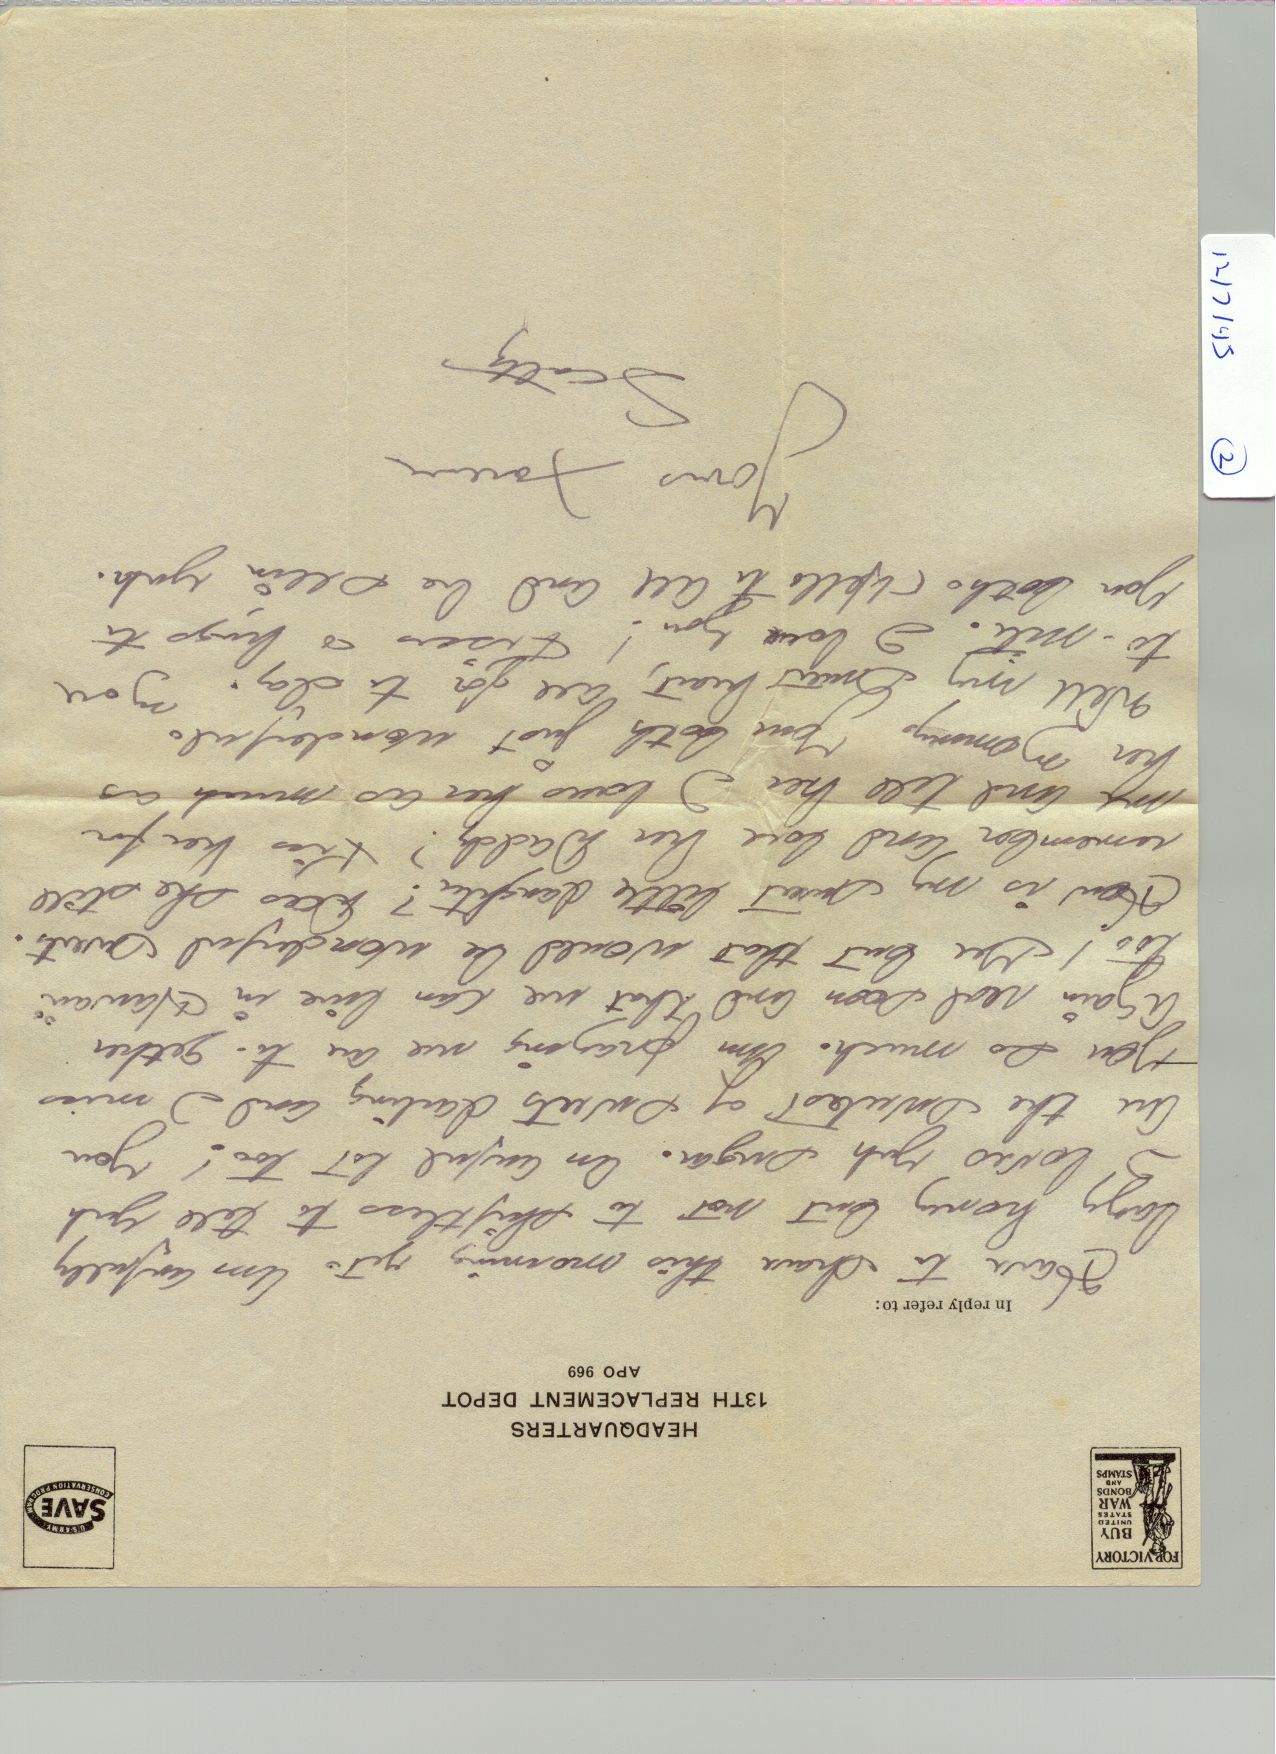 FOR VICTORY
BUY
UNITED
STATES
WAR
BONDS
AND
STAMPS
U·S·ARMY
SAVE
CONSERVATION PROGRAM
HEADQUARTERS
13TH REPLACEMENT DEPOT
APO 969
In reply refer to:
Have to shave this morning yet. Am awfully
lazy honey but not to shiftless to tell yuh
I loves yuh sugar. An awful lot too! You
are the sweetest of sweets darling and I miss
you so much. Am praying we are to-gether
again real soon and that we can live in Hawaii
too! Gee but that would be wonderful sweets.
How is my sweet little daughter? Does she still
remember and love her Daddy? Kiss her for
me and tell her I loves her as much as
her Mommy. You both just wonderful.
Well my sweet heart, all for to-day. you
to-nite. I love you! Kisses & hugs to
you both. Hello to all and be seein yuh.
Yours Forever
Scotty
12/7/45 2